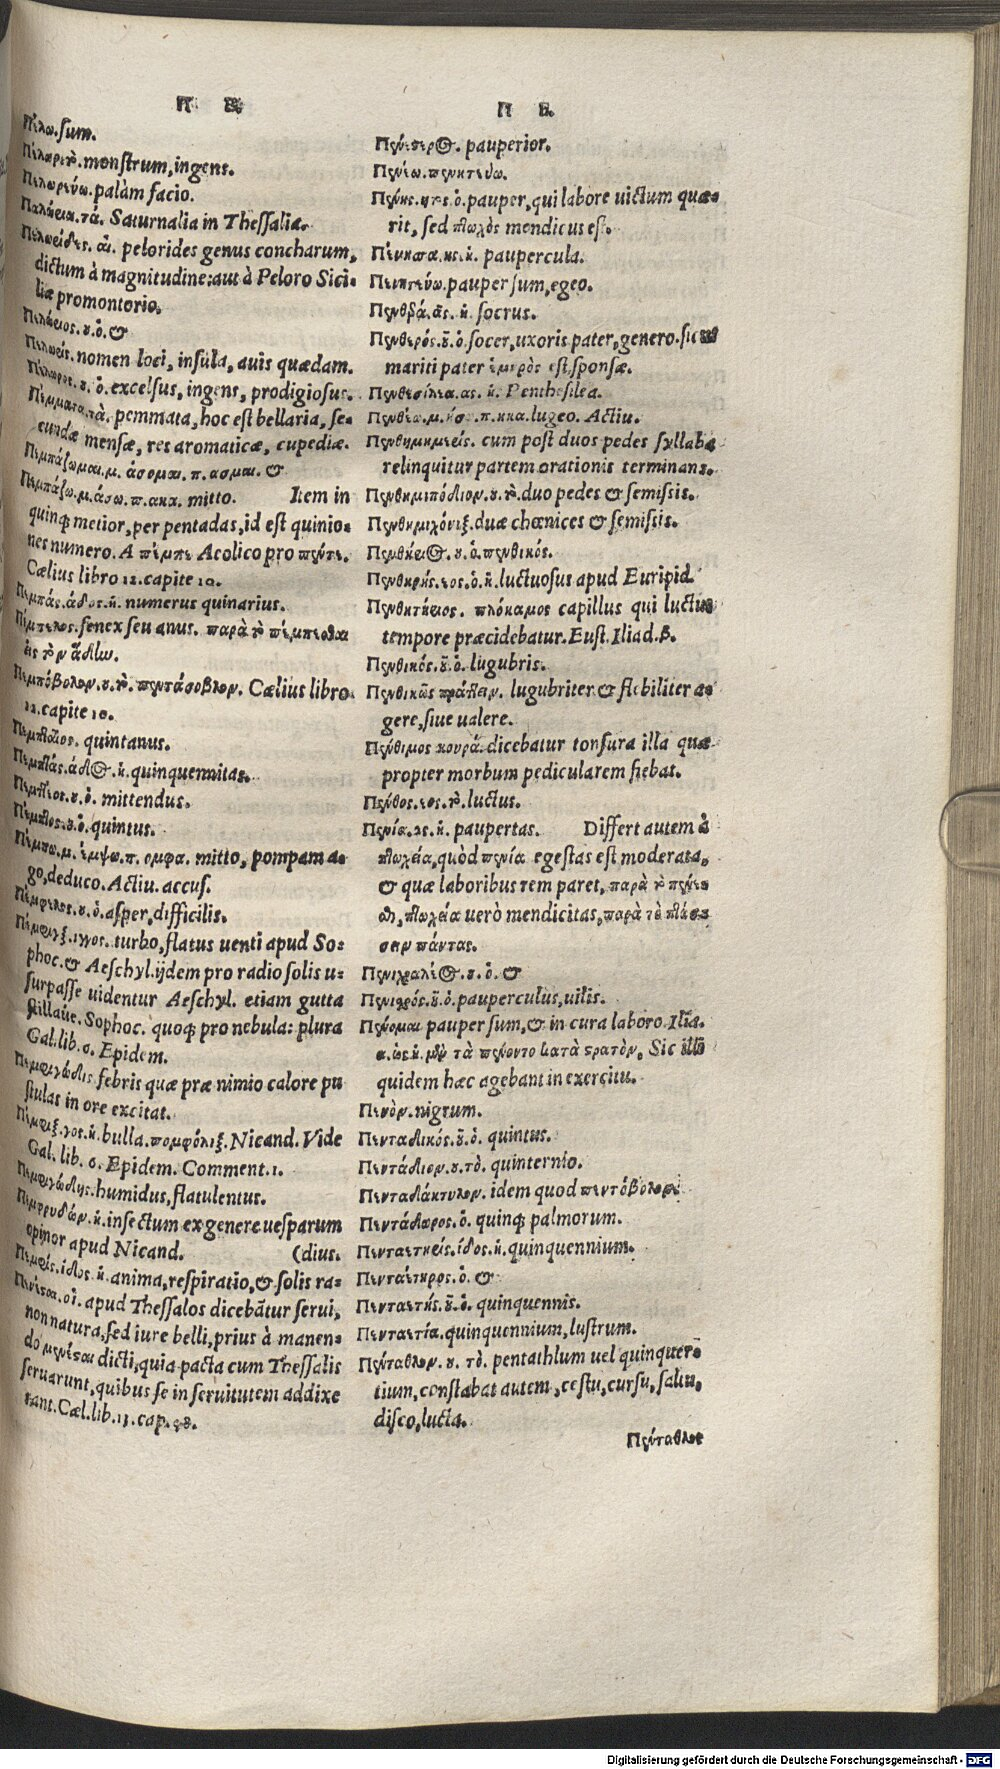 Π Ε
Πέλω. sum.
monſtrum, ingens.
Πελωρεύω. palàm facio.
τά. Saturnalia in Theſſalia.
αἱ. pelorides genus concharum,
dictum à magnitudine: aut à Peloro Sici-
liæ promontorio.
Πελώριος. ου. ὁ. &
nomen loci, inſula, auis quædam.
Πέλωρος. ου. ὁ. excelſus, ingens, prodigioſus.
Πέμματα. τὰ. pemmata, hoc eſt bellaria, ſe-
cundæ menſæ, res aromaticæ, cupediæ.
Πεμπάζομαι. μ. άσομαι. π. ασμαι. &
Πεμπάζω. μ. άσω. π. ακα. mitto. Item in
quinq; metior, per pentadas, id eſt quinio-
nes numero. A πέμπε Aeolico pro πέντε.
Cælius libro 12. capite 10.
Πεμπάς. άδος. ἡ. numerus quinarius.
Πέμπελος. ſenex ſeu anus. παρὰ τὸ πέμπεσθαι
εἰς τὸν ᾅδην.
Πεμπόβολον. ου. τὸ. πεντάοβολον. Cælius libro
12. capite 10.
Πεμπταῖος. quintanus.
Πεμπτάς. άδος. ἡ. quinquennitas.
Πεμπτέος. ου. ὁ. mittendus.
Πέμπτος. ου. ὁ. quintus.
Πέμπω. μ. έμψω. π. ομφα. mitto, pompam a-
go, deduco. Actiu. accuſ.
Πέμφελος. ου. ὁ. aſper, difficilis.
Πέμφιγξ. ιγγος. turbo, flatus uenti apud So-
phoc. & Aeſchyl. ijdem pro radio ſolis u-
ſurpaſſe uidentur Aeſchyl. etiam gutta
ſtillãte. Sophoc. quoq; pro nebula: plura
Gal. lib. 6. Epidem.
febris quæ præ nimio calore pu
ſtulas in ore excitat.
Πέμφιξ. γος. ἡ. bulla. πομφόλιξ. Nicand. Vide
Gal. lib. 6. Epidem. Comment. 1.
Πεμφιγώδης. humidus, flatulentus.
Πεμφρυδών. ἡ. inſectum ex genere ueſparum
opinor apud Nicand. (dius.
Πέμφις. ιδος. ἡ. anima, reſpiratio, & ſolis ra-
Πενέσαι. οἱ. apud Theſſalos dicebãtur ſerui,
non natura, ſed iure belli, prius à manen-
do μενέσαι dicti, quia pacta cum Theſſalis
ſeruarunt, quibus ſe in ſeruitutem addixe
rant. Cæl. lib. 13. cap.
Π Ε
Πενέστερος. pauperior.
Πενέω. πενητεύω.
Πένης. ητος. ὁ. pauper, qui labore uictum quæ-
rit, ſed πτωχὸς mendicus eſt.
Πένησσα. ης. ἡ. paupercula.
Πενητεύω. pauper ſum, egeo.
Πενθερά. ᾶς. ἡ. ſocrus.
Πενθερός. οῦ. ὁ. ſocer, uxoris pater, genero. ſicut
mariti pater ἑκυρὸς eſt ſponſæ.
Πενθεσίλεια. ας. ἡ. Pentheſilea.
Πενθέω. μ. ήσω. π. ηκα. lugeo. Actiu.
Πενθημιμερίς. cum poſt duos pedes ſyllaba
relinquitur partem orationis terminans.
Πενθημιπόδιον. ου. τὸ. duo pedes & ſemiſsis.
Πενθημιχόνιξ. duæ chœnices & ſemiſsis.
Πενθήμος. ου. ὁ. πενθικός.
Πενθηρής. εος. ὁ. ἡ. luctuoſus apud Euripid.
Πενθητήριος. πλόκαμος capillus qui luctus
tempore præcidebatur. Euſt. Iliad. β.
Πενθικός. οῦ. ὁ. lugubris.
Πενθικῶς πράττειν. lugubriter & flebiliter a-
gere, ſiue ualere.
Πένθιμος κουρά. dicebatur tonſura illa quæ
propter morbum pedicularem fiebat.
Πένθος. εος. τὸ. luctus.
Πενία. ας. ἡ. paupertas. Differt autem à
πτωχεία, quòd πενία egeſtas eſt moderata,
& quæ laboribus rem paret, παρὰ τὸ πένεσ
θαι, πτωχεία uerò mendicitas, παρὰ τὸ πτώσ
σειν πάντας.
Πενιχραλέος. ου. ὁ. &
Πενιχρός. οῦ. ὁ. pauperculus, uilis.
Πένομαι pauper ſum, & in cura laboro. Ilia.
α. ὡς ἡ. μὲν τὰ πένοντο κατὰ στρατόν. Sic illi
quidem hæc agebant in exercitu.
Πενόν. nigrum.
Πενταδικός. οῦ. ὁ. quintus.
Πεντάδιον. ου. τὸ. quinternio.
Πενταδάκτυλον. idem quod πεντόβολον.
Πεντάδωρος. ὁ. quinq; palmorum.
Πενταετηρίς. ίδος. ἡ. quinquennium.
Πενταέτηρος. ὁ. &
Πενταετής. οῦ. ὁ. quinquennis.
Πενταετία. quinquennium, luſtrum.
Πένταθλον. ου. τὸ. pentathlum uel quinquer-
tium, conſtabat autem, ceſtu, curſu, ſaltu,
diſco, lucta.
Πένταθλος
Digitalisierung gefördert durch die Deutsche Forschungsgemeinschaft - DFG